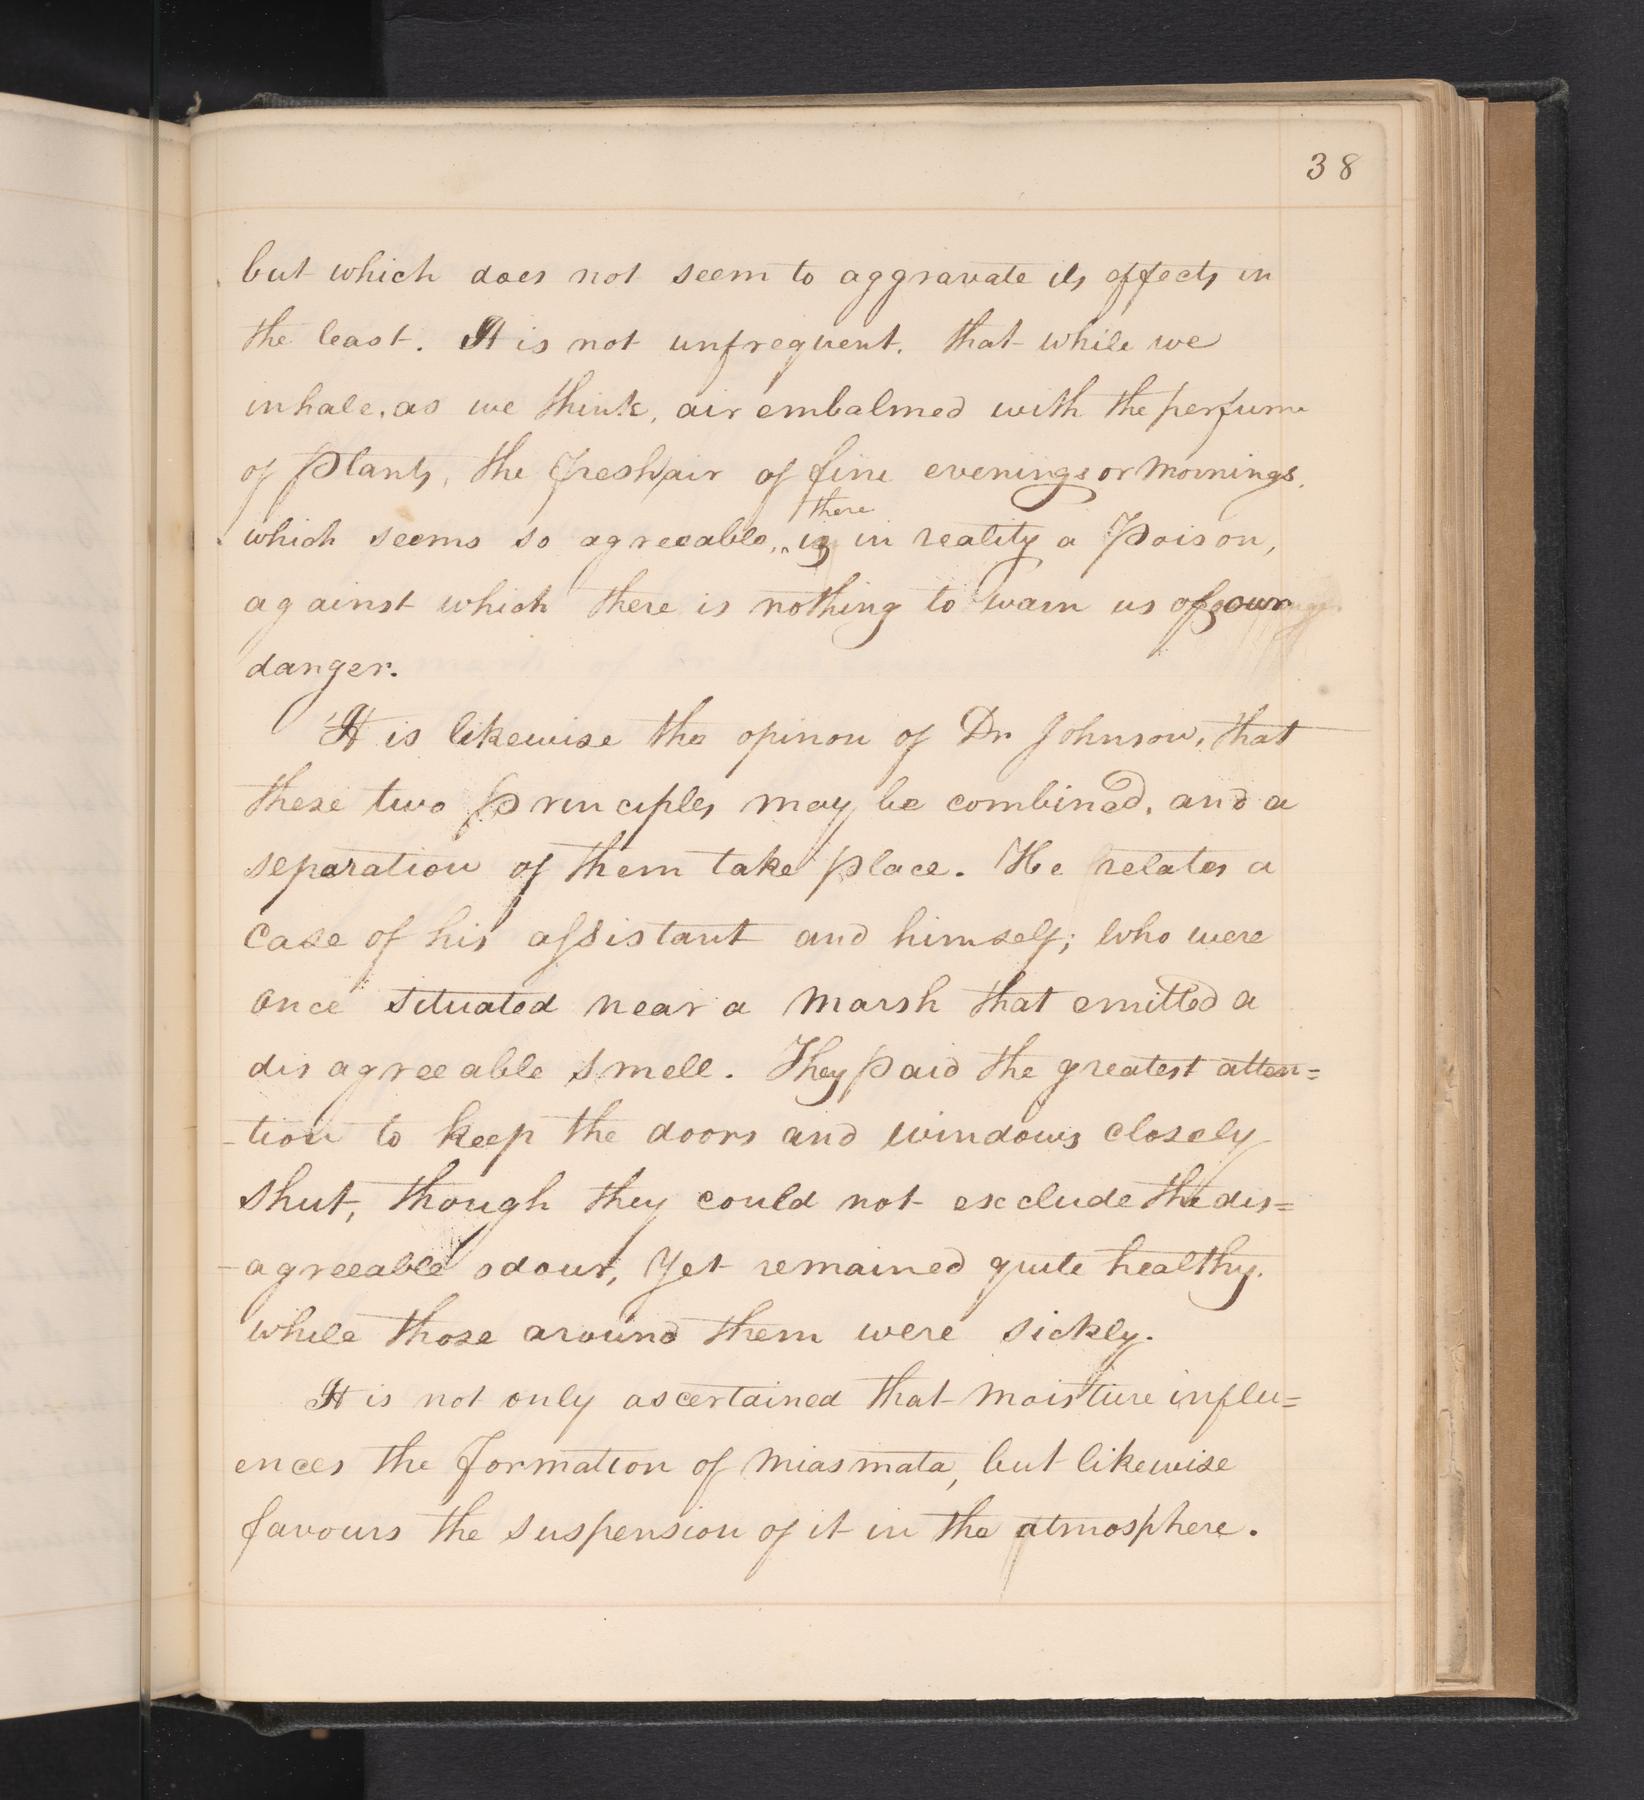 38
but which does not seem to aggravate its effects in
the least. It is not unfrequent, that while we
inhale, as we think, air embalmed with the perfume
of Plants, the fresh air of fine evenings or mornings,
there
which seems so agreeable, is in reality a Poison,
against which there is nothing to warn us of our
danger.
It is likewise the opinon of Dr Johnson, that
these two Principles may be combined, and a
separation of them take place. He relates a
Case of his assistant and himself; who were
Once situated near a Marsh that emitted a
disagreeable smell. They paid the greatest atten=
-tion to keep the doors and windows closely
shut, though they could not exclude the dis=
-agreeable odour, Yet remained quite healthy,
while those around them were sickly.
It is not only ascertained that Moisture influ=
ences the formation of Miasmata, but likewise
favours the suspension of it in the atmosphere.